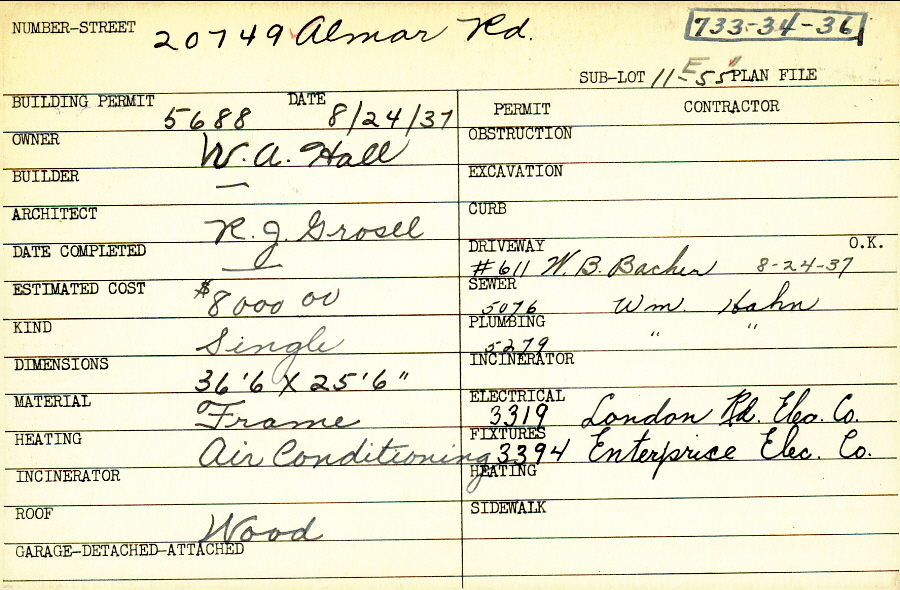 NUMBER-STREET 20749 Almar Rd. 733-34-36
SUB-LOT 11-E 55" PLAN FILE
BUILDING PERMIT 5688 DATE 8/24/37
PERMIT CONTRACTOR
OWNER W. A. Hall
OBSTRUCTION
BUILDER —
EXCAVATION
ARCHITECT R. J. Grosel
CURB
DATE COMPLETED —
DRIVEWAY #611 W. B. Bacher 8-24-37 O.K.
ESTIMATED COST $8000 00
SEWER 5076 Wm. Hahn
KIND Single
PLUMBING 5279 " "
DIMENSIONS 36'6 X 25'6"
INCINERATOR
MATERIAL Frame
ELECTRICAL 3319 London Rd. Elec. Co.
HEATING Air Conditioning
FIXTURES 3394 Enterprice Elec. Co.
INCINERATOR
HEATING
ROOF Wood
SIDEWALK
GARAGE-DETACHED-ATTACHED